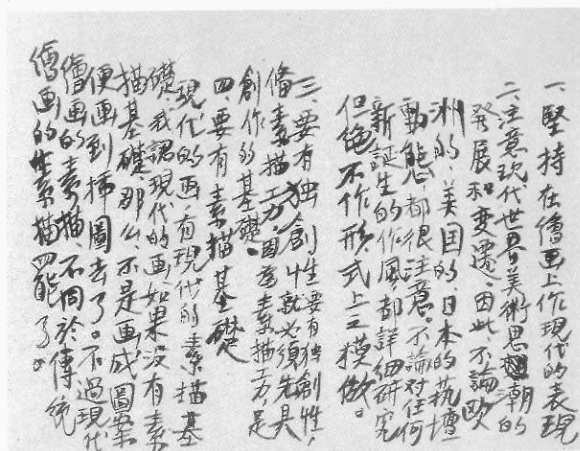 一、堅持在繪画上作現代的表現
二、注意現代世界美術思潮的
發展和變遷、因此不論欧
洲的、美国的、日本的芸壇
動態、都很注意。不論対任何
新証生的作風都詳細研究
但絶不作形式上之摸倣。
三、要有独創性要有独創性，
就必須先具
備素描工力、因為素描工力是
創作的基礎。
四、要有素描基礎
現代的画、有現代的素描基
礎、我認現代的画、如果没有素
描基礎、那么、不是画成圖案
便画到插圖去了。不過現代
繪画的素描、不同於傳統
繪画的素描罷了。